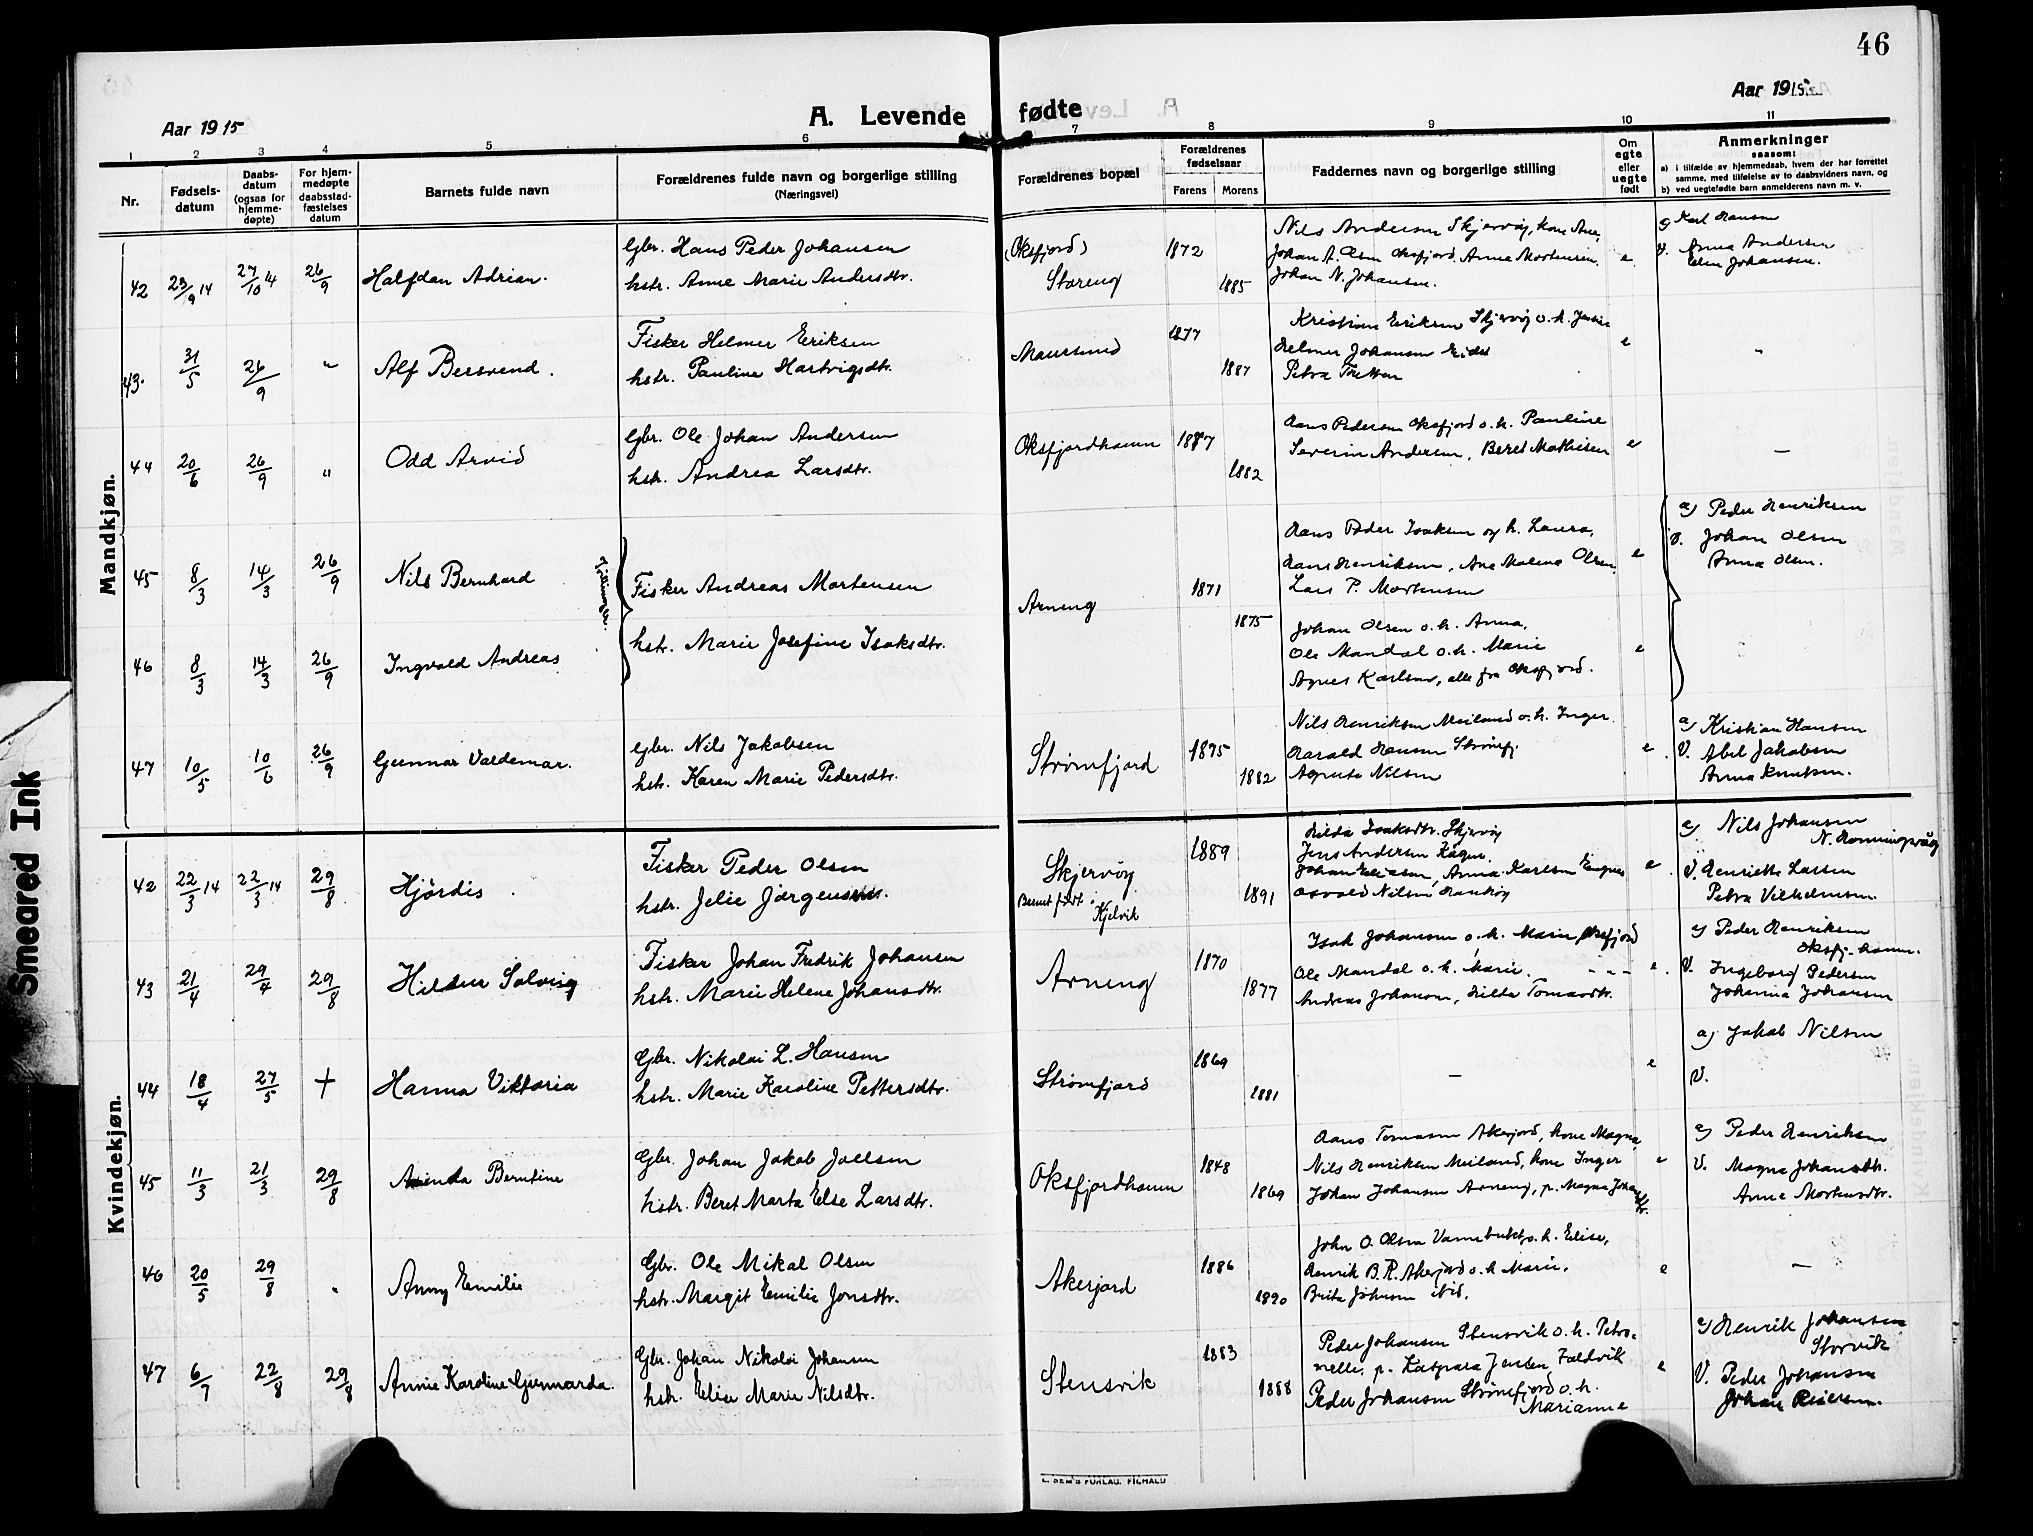 46
Aar 1915
A. Levende fødte
Aar 1915
1 2 3 4 5 6 7 8 9 10 11
Nr.
Fødsels-
datum
Daabs-
datum
(ogsaa for
hjemme-
døpte)
For hjem-
medøpte
daabsstad-
fæstelses
datum
Barnets fulde navn
Forældrenes fulde navn og borgerlige stilling
(Næringsvei)
Forældrenes bopæl
Forældrenes
fødselsaar
Farens Morens
Faddernes navn og borgerlige stilling
Om
egte
eller
uegte
født
Anmerkninger
saasom:
a) i tilfælde av hjemmedaab, hvem der har forrettet
samme, med tilføielse av to daabsvidners navn, og
b) ved uegtefødte barn anmelderens navn m. v.
Mandkjøn.
42 23/9 14 27/10 14 26/9 Halfdan Adrian.
Gbr. Hans Peder Johansen
hstr. Anne Marie Andersdtr.
(Oksfjord)
Storeng
1872
1885
Nils Andersen Skjervøy, kone Ane,
Johan A. Olsen Oksfjord, Anna Mortensen,
Johan N. Johansen.
e.
a) Karl Hansen
V. Anna Andersen
Elen Johansen.
43. 31/5 26/9 " Alf Bersvend.
Fisker Helmer Eriksen
hstr. Pauline Hartvigsdtr.
Maursund
1877
1887
Kristian Eriksen Skjervøy o. h. Jensine
Helmer Johansen Eidet
Petra Tretten
e
"
44 20/6 26/9 " Odd Arvid
Gbr. Ole Johan Andersen
hstr. Andrea Larsdtr.
Oksfjordhamn
1887
1882
Hans Pedersen Oksfjord o. h. Pauline
Severin Andersen, Beret Mathisen
e
—
45 8/3 14/3 26/9 Nils Bernhard
Tvillinger.
Fisker Andreas Mortensen
hstr. Marie Josefine Isaksdtr.
Arneng
1871
1875
Hans Peder Isaksen og h. Laura,
Hans Henriksen, Ane Malena Olsen,
Lars P. Mortensen
e
a) Peder Henriksen
V. Johan Olsen
Anna Olsen.
46 8/3 14/3 26/9 Ingvald Andreas
Johan Olsen o. h. Anna,
Ole Mandal o. h. Marie
Agnes Karlsen, alle fra Oksfjord.
e
47 10/5 10/6 26/9 Gunnar Valdemar.
Gbr. Nils Jakobsen
hstr. Karen Marie Pedersdtr.
Strømfjord
1875
1882
Nils Henriksen Meiland o. h. Inger
Harald Hansen Strømfj.
Agnete Nilsen
e.
a) Kristian Hansen
V. Abel Jakobsen
Anna Knutsen.
Kvindekjøn.
42 22/3 14 22/3 14 29/8 Hjørdis.
Fisker Peder Olsen
hstr. Jelie Jørgensen.
Skjervøy
Barnet født i
Kjelvik
1889
1891
Hilda Isaksdtr. Skjervøy
Jens Andersen Kagen.
Johan Eliasen, Anna Karlsen Engnes
Osvald Nilsen Haukøy
e.
a) Nils Johansen
N. Honningsvåg
V. Henriette Larsen
Petra Vilhelmsen.
43 21/4 29/4 29/8 Hildur Solveig
Fisker Johan Fredrik Johansen
hstr. Marie Helene Johansdtr.
Arneng
1870
1877
Isak Johansen o. h. Marie, Oksfjord
Ole Mandal o. h. Marie. - - -
Andreas Johansen, Hilda Tomasdtr.
e.
a) Peder Henriksen
Oksfj. hamn.
V. Ingeborg Pedersen
Johanna Johansen
44 18/4 27/5 + Hanna Viktoria
Gbr. Nikolai L. Hansen
hstr. Marie Karoline Pettersdtr.
Strømfjord
1869
1881
—
e
a) Jakob Nilsen
V.
45 11/3 21/3 29/8 Amanda Berntine
Gbr. Johan Jakob Joelsen
hstr. Beret Marta Else Larsdtr.
Oksfjordhamn
1848
1869
Hans Tomasen Akerjord, kone Magna,
Nils Henriksen Meiland, kone Inger
Johan Johansen Arneng, p. Magna Johansdtr.
e
a) Peder Henriksen
V. Magna Johansdtr.
Anne Mortensdtr.
46 20/5 29/8 " Anny Emilie
Gbr. Ole Mikal Olsen
hstr. Margit Emilie Jonsdtr.
Akerjord
1886
1890
John O. Olsen Vannbukt, o. h. Elise,
Henrik B. P. Akerjord o. h. Marie,
Brita Johnsen ibid.
e
—
47 6/7 22/8 29/8 Annie Karoline Gunnarda.
Gbr. Johan Nikolai Johansen
hstr. Elise Marie Nilsdtr.
Stensvik
1883
1888
Peder Johansen Stensvik o. h. Petro-
nelle, p. Kaspara Jensen Taskvik
Peder Johansen Strømfjord o. h.
Marianne
e
a) Henrik Johansen
Storvik
V. Peder Johansen
Johan Reiersen.
E. SEM'S FORLAG. F.HALD
Smeared Ink